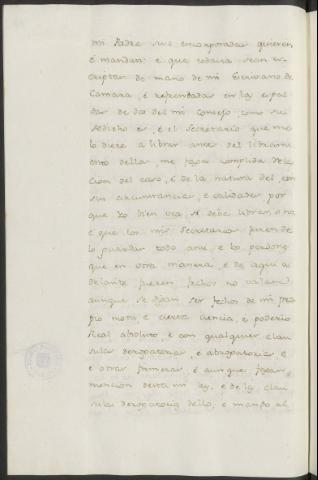 mi Padre suso encorporadas quieren,
é mandan: é que todavia sean es-
criptas de mano de mi Escrivano de
Camara, é refrendadas en las espal-
das de dos del mi Consejo, como su-
sodicho es, é el Secretario que me
lo diere a librar antes del libramien-
to della, me faga complida rela-
cion del caso, é de la natura del, con
sus circunstancias, e calidades, por
que Yo bien vea si debe librar, o no
é que los mis Secretarios juren de
lo guardar todo ansi, e lo pongan
que en otra manera, é de aqui a
delante fueren fechas no valan
aunque se digan ser fechas de mi pro-
pio motu é cierta ciencia, é poderio
Real absoluto, é con qualquier clau-
sulas derogatorias, é abrogatorias é
é otras firmezas, é aunque fagan
mencion desta mi ley, é de las clau-
sulas derogatorias dello, e mando al